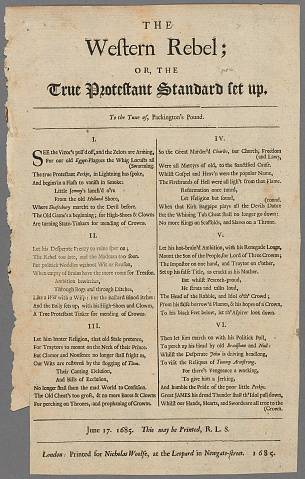 THE
Western Rebel;
OR, THE
True Protestant Standard set up.
To the Tune of, Packington's Pound.
I.
SEE the Vizor's pull'd off, and the Zelots are Arming,
For our old Egypt-Plagues the Whig Locusts all (Swarming;
The true Protestant Perkin, in Lightning has spoke,
And begins in a Flash to vanish in Smoke:
Little Jemmy's lanch'd o're
From the old Holland Shore,
Where Shaftsbury marcht to the Devil before:
The Old Game's a beginning; for High-Shoes & Clowns
Are turning State-Tinkers for mending of Crowns.
II.
Let his Desperate Frenzy to ruine spur on;
The Rebel too late, and the Madman too soon:
But politick Noddles without Wit or Reason,
When empty of Brains have the more room for Treason.
Ambition bewitches,
Through Bogs and through Ditches,
Like a Will with a Wisp: For the Bastard blood itches:
And the Bully sets up, with his High-shoes and Clowns,
A True Protestant Tinker for mending of Crowns.
III.
Let him banter Religion, that old stale pretence,
For Traytors to mount on the Neck of their Prince.
But Clamor and Nonsence no longer shall fright us,
Our Wits are restored by the flogging of Titus.
Their Canting Delusion,
And Bills of Exclusion,
No longer shall sham the mad World to Confusion.
The Old Cheat's too gross, & no more Boobies & Clowns
For perching on Thrones, and prophaning of Crowns.
IV.
So the Great Murder'd Charles, our Church, Freedom (and Laws,
Were all Martyrs of old, to the Sanctified Cause.
Whilst Gospel and Heav'n were the popular Name,
The Firebrands of Hell were all light from that Flame.
Reformation once tun'd,
Let Religion but sound, (round.
When that Kirk Bagpipe plays all the Devils Dance
But the Whining Tub Cheat shall no longer go down:
No more Kings on Scaffolds, and Slaves on a Throne.
V.
Let his hot-brain'd Ambition, with his Renegade Loons,
Mount the Son of the People, for Lord of Three Crowns;
The Impostor on one hand, and Traytor on t'other,
Set up his false Title, as crackt as his Mother.
But whilst Peacock-proud,
He struts and talks loud,
The Head of the Rabble, and Idol o'th' Crowd;
From his false borrow'd Plumes, & his hopes of a Crown,
To his black Feet below, let th'Aspirer look down.
VI.
Then let him march on with his Politick Poll,
To perch up his Head by old Bradshaw and Noll:
Whilst the Desperate Jehu is driving headlong,
To visit the Reliques of Tommy Armstrong.
For there's Vengeance a working,
To give him a Jerking,
And humble the Pride of the poor little Perkin.
Great JAMES his dread Thunder shall th'Idol pull down,
Whilst our Hands, Hearts, and Swords are all true to the (Crown.
June 17. 1685. This may be Printed, R. L. S.
London: Printed for Nicholas Woolfe, at the Leopard in Newgate-street. 1685.